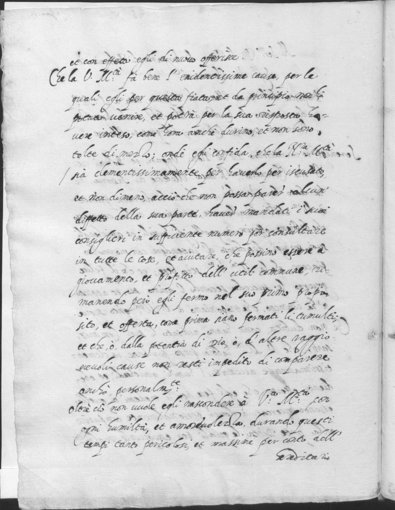 et con effetto egli di nuovo offerisce
Che la V. M.tà sà bene l'euidentissime cause, per le
quali egli per questa fiata, ne da principio ne li
poteua uenire, et potrà per la sua risposta ha-
uere inteso, come loro anche durino, et non sono
tolte di mezzo; onde egli confida, che la V.ra M.tà
sia clementissimamente per hauerlo per iscusato,
et non dimeno acciò che non possa parer alcun
difetto della sua parte, hauer mandati i suoi
consiglieri in sufficiente numero per consultare
in tutte le cose, et aiutare, che possino essere a
giouamento, et profitto dell'util commune ri-
manendo però egli fermo nel suo primo propo-
sito, et offerta, come prima siano fermati li tumulti,
et che ò, dalla potentia di Dio, ò, d'altre maggio
cause non resti impedito di comparere
anche personalm.te
ciò non uuole egli nascondere à V.ra M.tà con
ogni humiltà, et amoreuolezza, durando questi
tempi tanto pericolosi, et massime per conto dell'